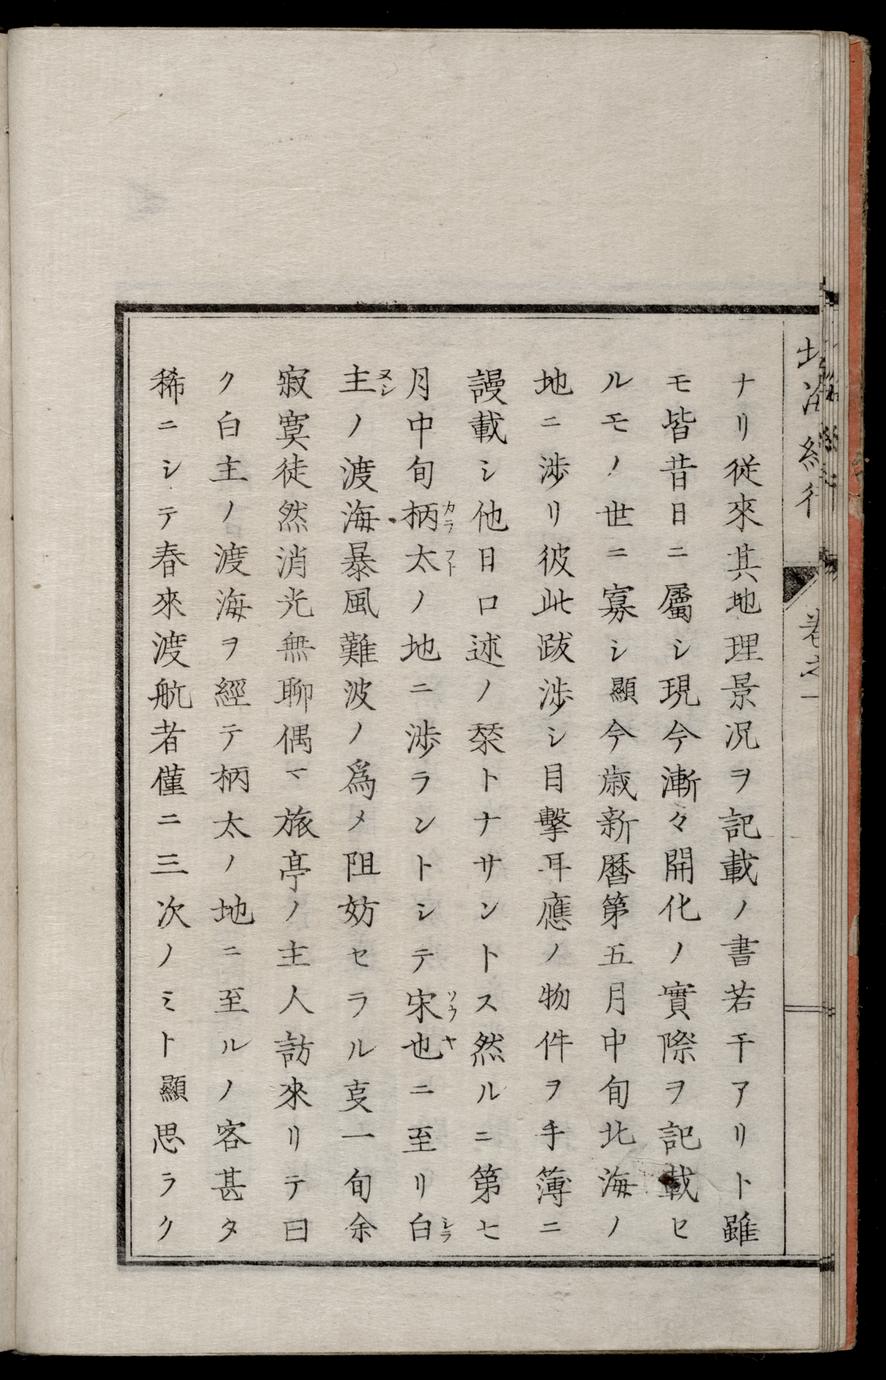 ナリ従來其地理景况ヲ記載ノ書若干アリト雖
モ皆昔日ニ屬シ現今漸々開化ノ實際ヲ記載セ
ルモノ世ニ寡シ顯今歳新暦第五月中旬北海ノ
地ニ渉リ彼此跋渉シ目擊耳應ノ物件ヲ手簿ニ
謾載シ他日口述ノ栞トナサントス然ルニ第七
月中旬柄太ノ地ニ渉ラントシテ宋也ニ至リ白
カラフト
ソウヤ
シラ
主ノ渡海暴風難波ノ爲メ阻妨セラル㕝一旬余
ヌシ
寂寞徒然消光無聊偶マ旅亭ノ主人訪來リテ曰
ク白主ノ渡海ヲ經テ柄太ノ地ニ至ルノ客甚タ
稀ニシテ春來渡航者僅ニ三次ノミト顯思ラク
紀行
卷之一